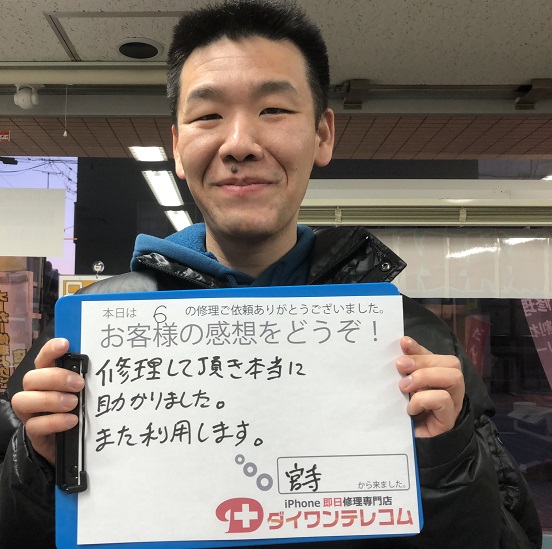 本日は 6 の修理ご依頼ありがとうございました。
お客様の感想をどうぞ！
修理して頂き本当に
助かりました。
また利用します。
宮寺 から来ました。
iPhone 即日修理専門店
ダイワンテレコム